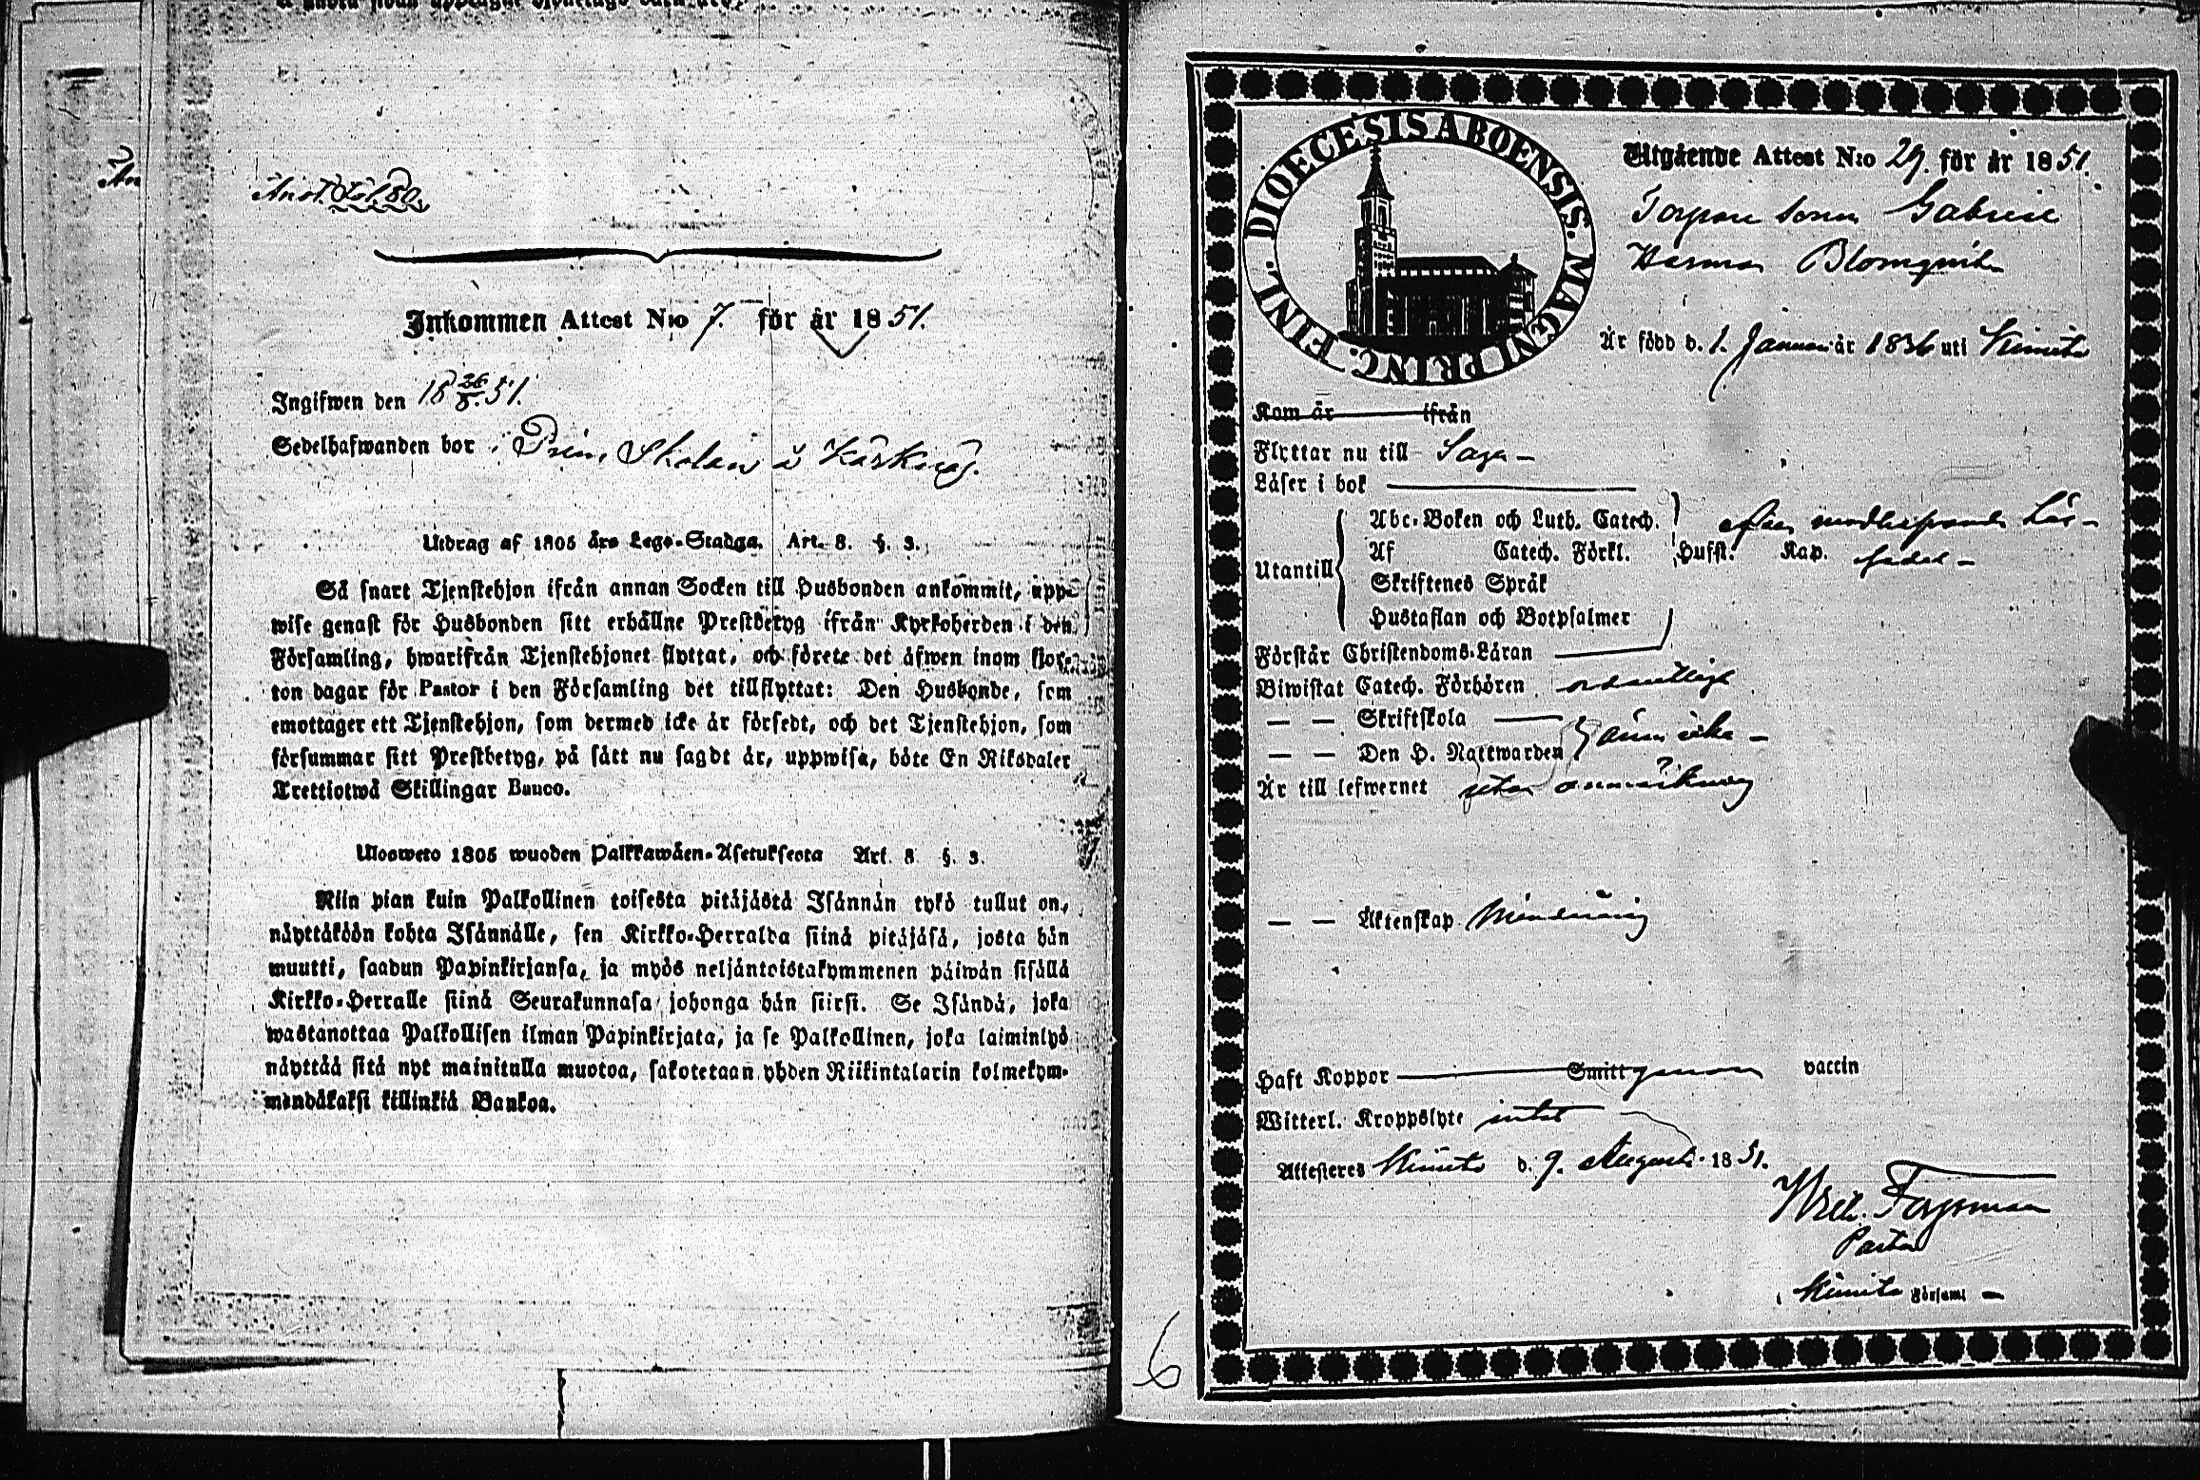 Anot. Fol. 80.
Inkommen Attest N:o 7. för år 1851.
Ingifwen den 18 26/8. 51.
Sedelhafwanden bor i Prim. Skolan i Kärknäs.
Utdrag af 1805 års Lego-Stadga. Art. 8. §. 3.
Så snart Tjenstehjon ifrån annan Socken till Husbonden ankommit, uppe
wise genast för Husbonden sitt erhållne Prestbetyg ifrån Kyrkoherden i den
Församling, hwarifrån Tjenstehjonet flyttat, och förete det äfwen inom fjor-
ton dagar för Pastor i den Församling det tillflyttat: Den Husbonde, som
emottager ett Tjenstehjon, som dermed icke är försedt, och det Tjenstehjon, som
försummar sitt Prestbetyg, på sätt nu sagdt är, uppwisa, böte En Riksdaler
Trettiotwå Skillingar Banco.
Ulosweto 1805 wuoden Palkkawäen-Asetuksesta Art. 8 §. 3.
Niin pian kuin Palkollinen toisesta pitäjästä Isännän tykö tullut on,
näyttäköön kohta Isännälle, sen Kirkko-Herralda siinä pitäjäsä, josta hän
muutti, saadun Papinkirjansa, ja myös neljäntoistakymmenen päiwän sisällä
Kirkko-Herralle siinä Seurakunnasa johonga hän siirsi. Se Isändä, joka
wastanottaa Palkollisen ilman Papinkirjata, ja se Palkollinen, joka laiminlyö
näyttää sitä nyt mainitulla muotoa, sakotetaan yhden Riikintalarin kolmekym-
mendäkaksi killinkiä Bankoa.
DIOECESIS ABOENSIS. MAGNI PRINC. FINL.
Utgående Attest N:o 29. för år 1851.
Torpare sonen Gabriel
Herman Blomqvist
Är född d. 1. Januari år 1836 uti Kimito
Kom år ifrån
Flyttar nu till Sagu
Läser i bok
Utantill
Abc-Boken och Luth. Catech.
Af Catech. Förkl. Hufst. Kap.
efter medhafwande Läse-
sedel
Skriftenes Språk
Hustaflan och Botpsalmer
Förstår Christendoms-Läran
Biwistat Catech. Förhören ordentligt
— — Skriftskola
— — Den H. Nattwarden
ännu icke
Är till lefwernet utan anmärkning
— — Äktenskap Minderårig
Haft Koppor Smitt genom vaccin
Witterl. Kroppslyte intet
Attesteres Kimito d. 9. Augusti 1851.
Pastor
i Kimito Församl
6